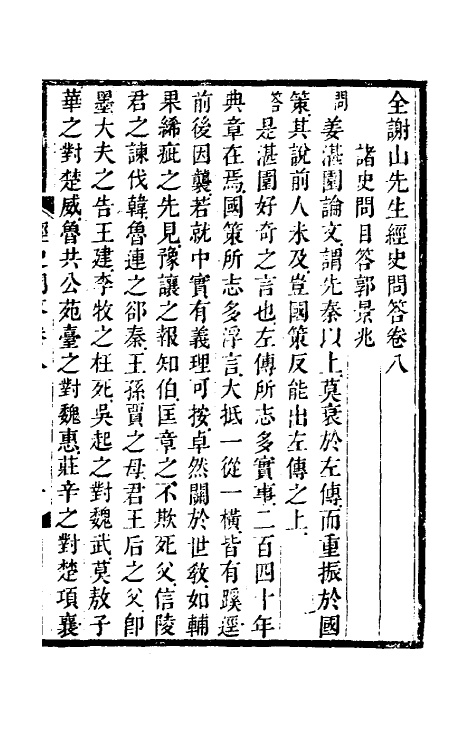 全謝山先生經史問答卷八
諸史問目答郭景兆
問姜湛園論文謂先秦以上莫衰於左傳而重振於國
策其說前人未及豈國策反能出左傳之上
答是湛園好奇之言也左傳所志多實事二百四十年
典章在焉國策所志多浮言大抵一從一橫皆有蹊徑
前後因襲若就中實有義理可按卓然關於世敎如輔
果絺疵之先見豫讓之報知伯匡章之不欺死父信陵
君之諫伐韓魯連之郤秦王孫賈之母君王后之父卽
墨大夫之告王建李牧之枉死吳起之對魏武莫敖子
華之對楚威魯共公苑臺之對魏惠莊辛之對楚項襄
經史問答卷八